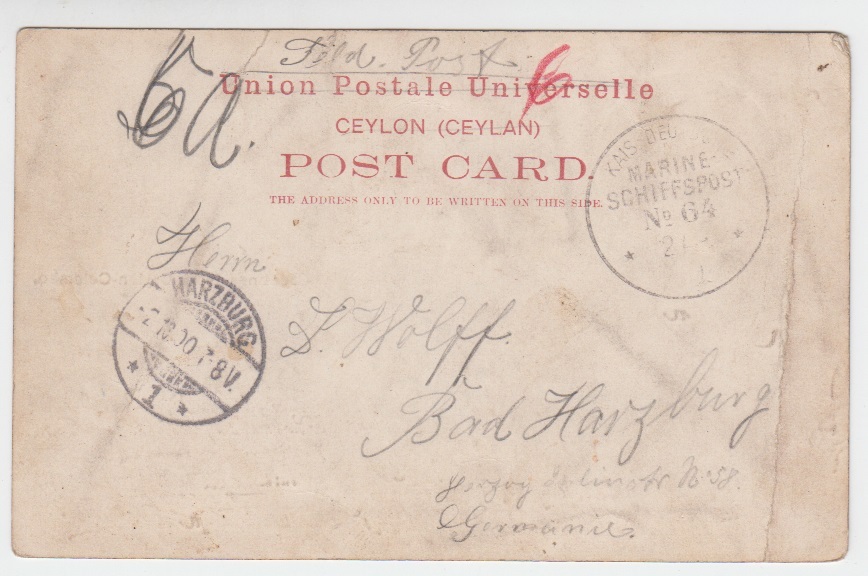 Feld. Post
6
Union Postale Universelle
CEYLON (CEYLAN)
POST CARD.
THE ADDRESS ONLY TO BE WRITTEN ON THIS SIDE.
KAIS. DEU
MARINE-
SCHIFFSPOST
No 64
Herrn
HARZBURG
-2.10.00.7-8V.
1
D. Wolff.
Bad Harzburg
Germanie.